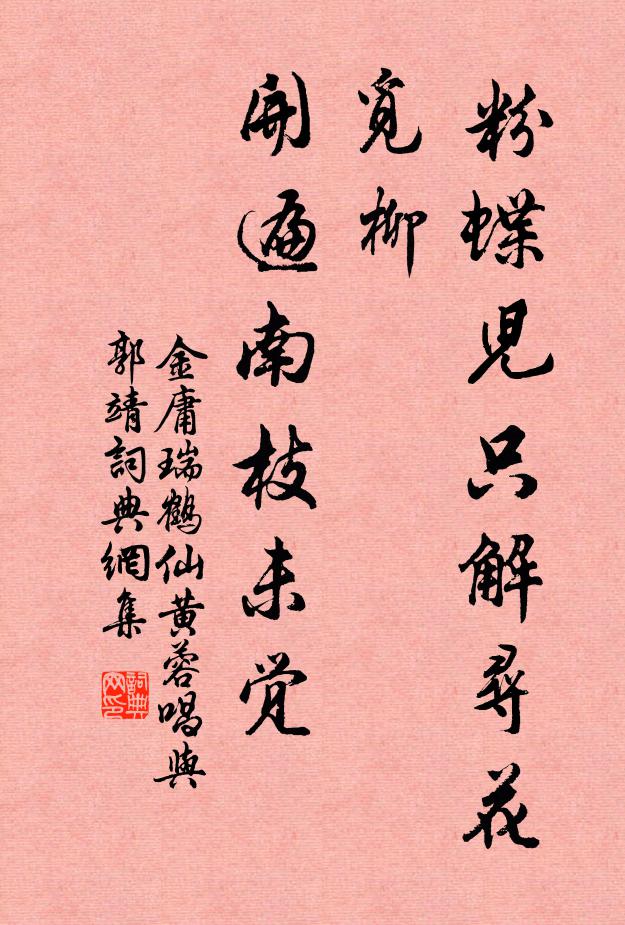 粉蝶児只解尋花
覓柳
開遍南枝未覚
金庸瑞鶴仙黄蓉唱與
郭靖詞典網集
詞典
网印